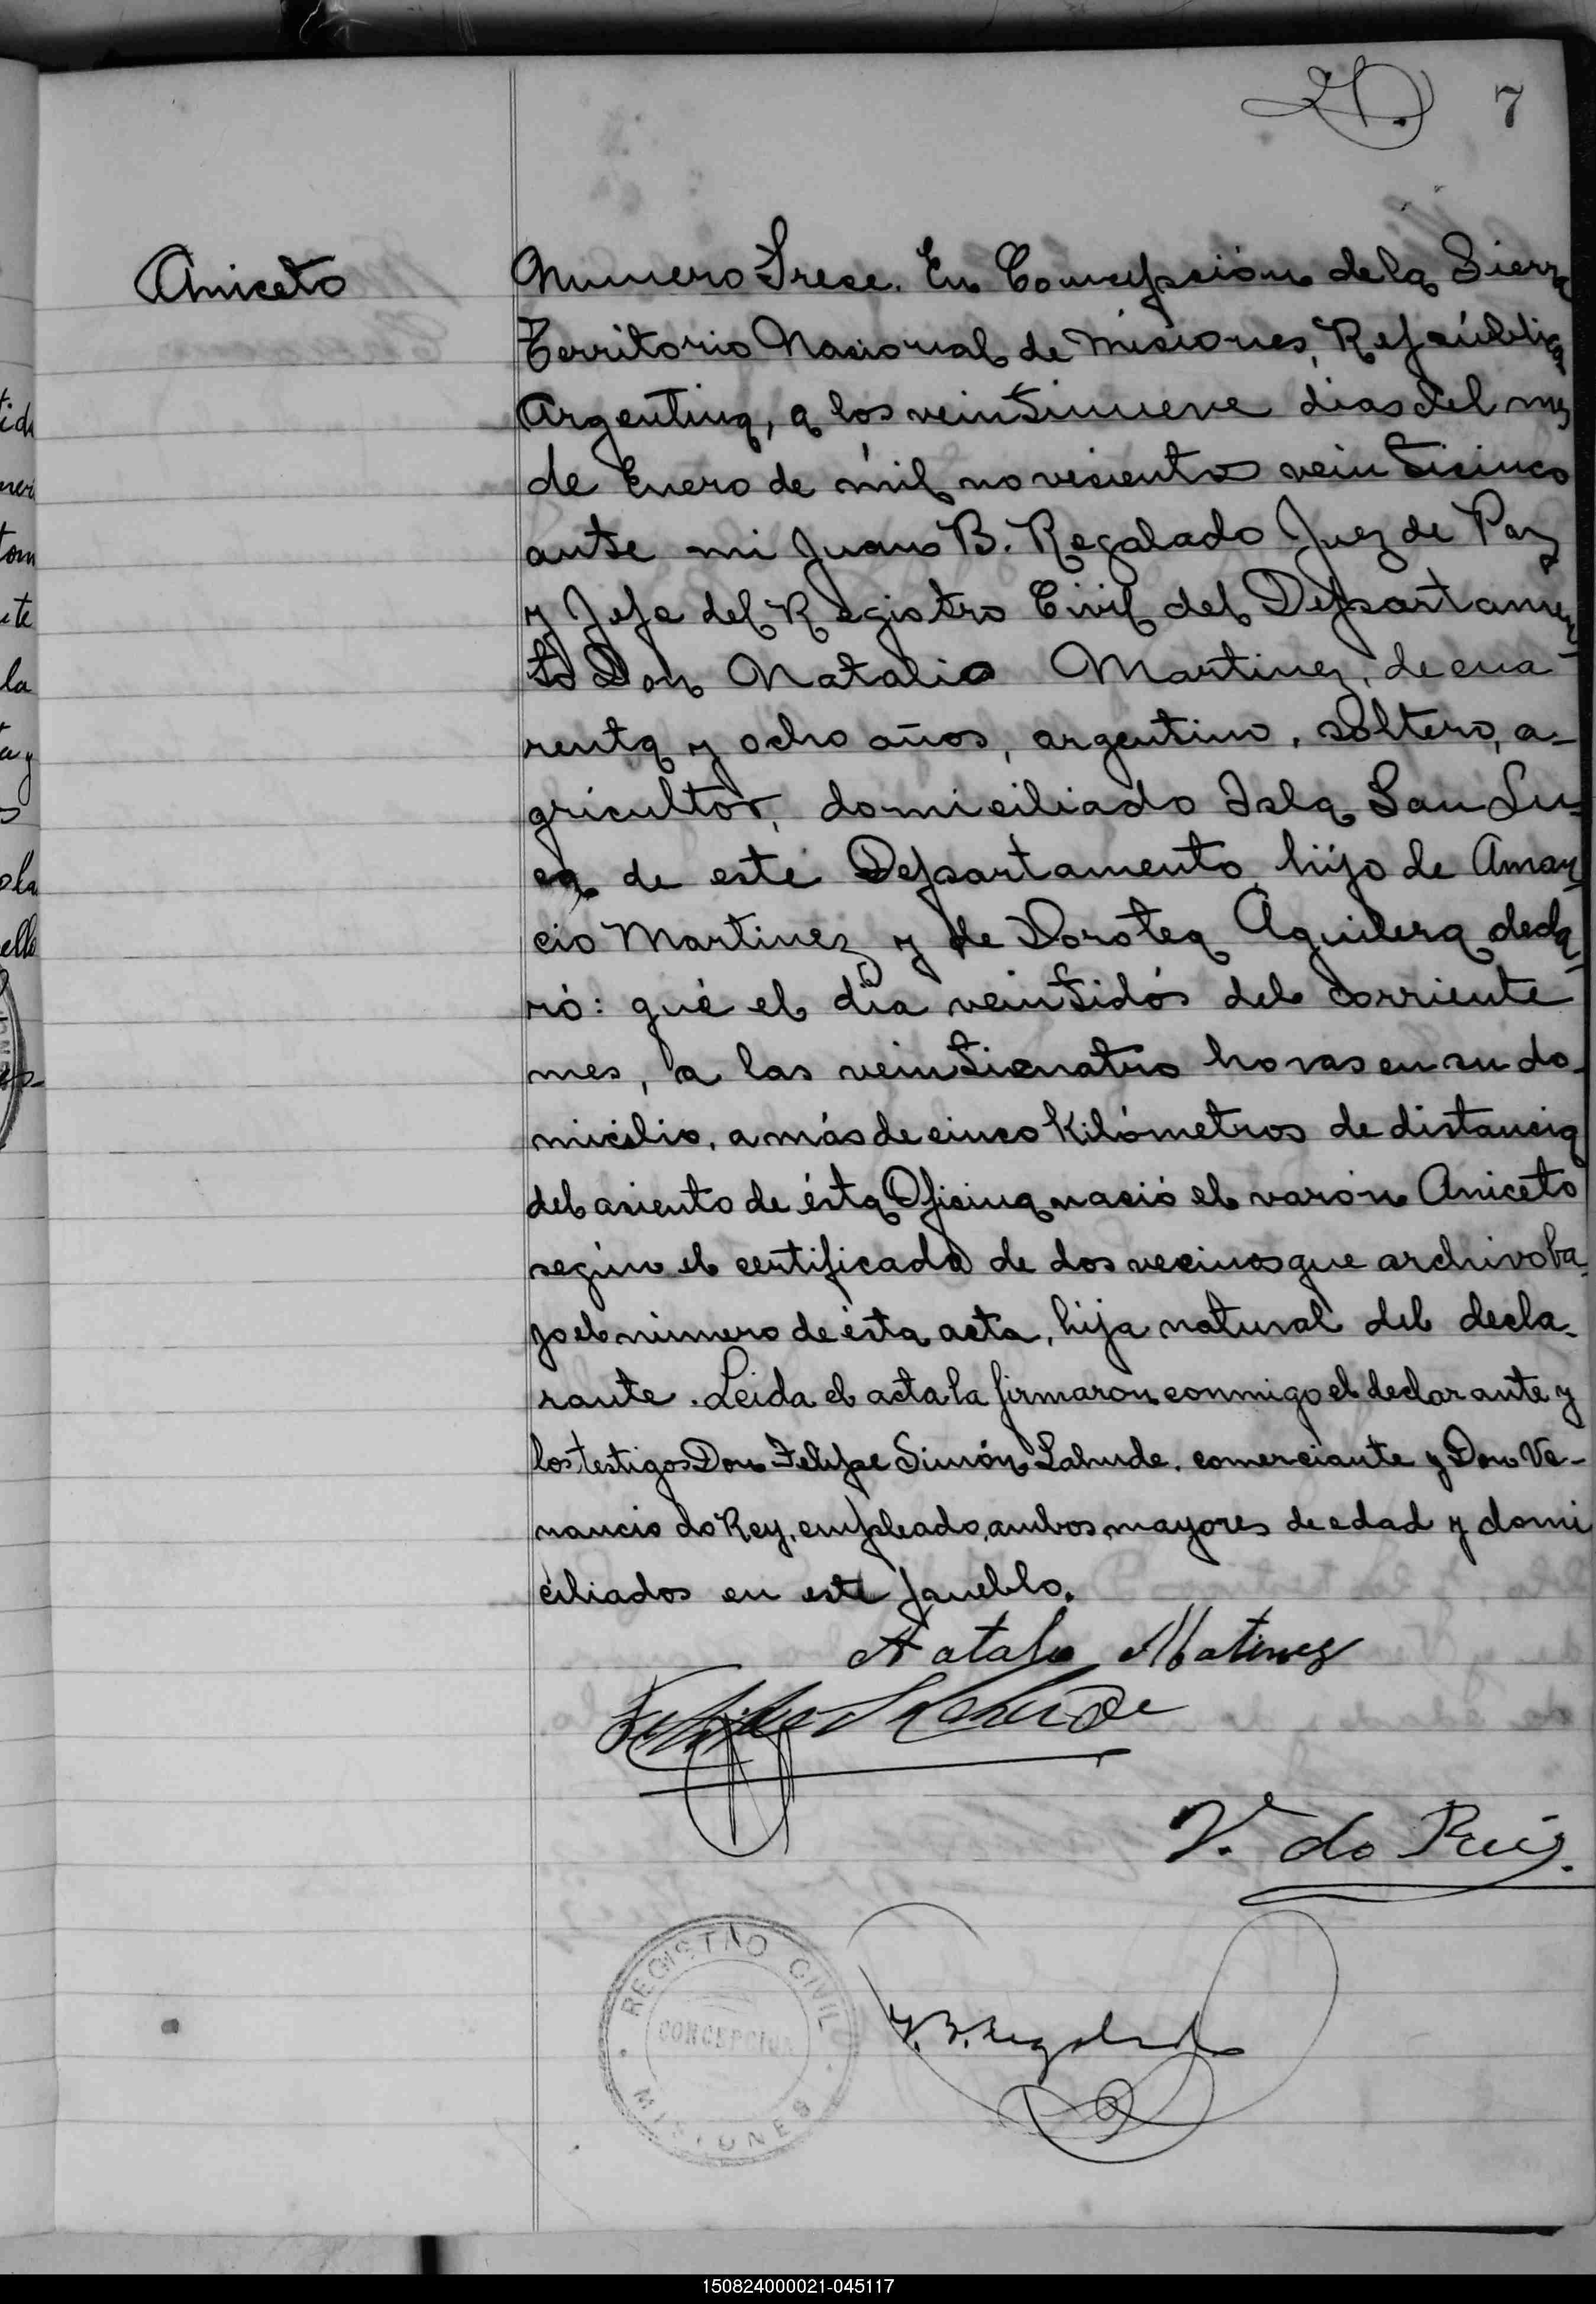 7
Aniceto
Numero Trece. En Concepción de la Sierra
Territorio Nacional de Misiones, República
Argentina, a los veintinueve dias del mes
de Enero de mil novecientos veinticinco
ante mi Juan B. Regalado Juez de Paz
y Jefe del Registro Civil del Departamen
to Don Natalio Martinez, de cua-
renta y ocho años, argentino, soltero, a-
gricultor, domiciliado Isla San Lu-
cas de este Departamento, hijo de Aman
cio Martinez y de Dorotea Aguilera decla-
ró: qué el dia veintidós del corriente
mes, a las veinticuatro horas en su do-
micilio, a más de cinco Kilómetros de distancia
del asiento de ésta Oficina nació el varón Aniceto
según el certificado de dos vecinos que archivo ba-
jo el número de ésta acta, hija natural del decla-
rante. Leida el acta la firmaron conmigo el declarante y
los testigos Don Felipe Simón Lahude, comerciante y Don Ve-
nancio do Rey, empleado, ambos mayores de edad y domi
ciliados en este pueblo.
Natalio Matinez
Felipe S Lahude
V. do Rey.
J. B. Regalado
REGISTRO CIVIL
CONCEPCION
MISIONES
150824000021-045117